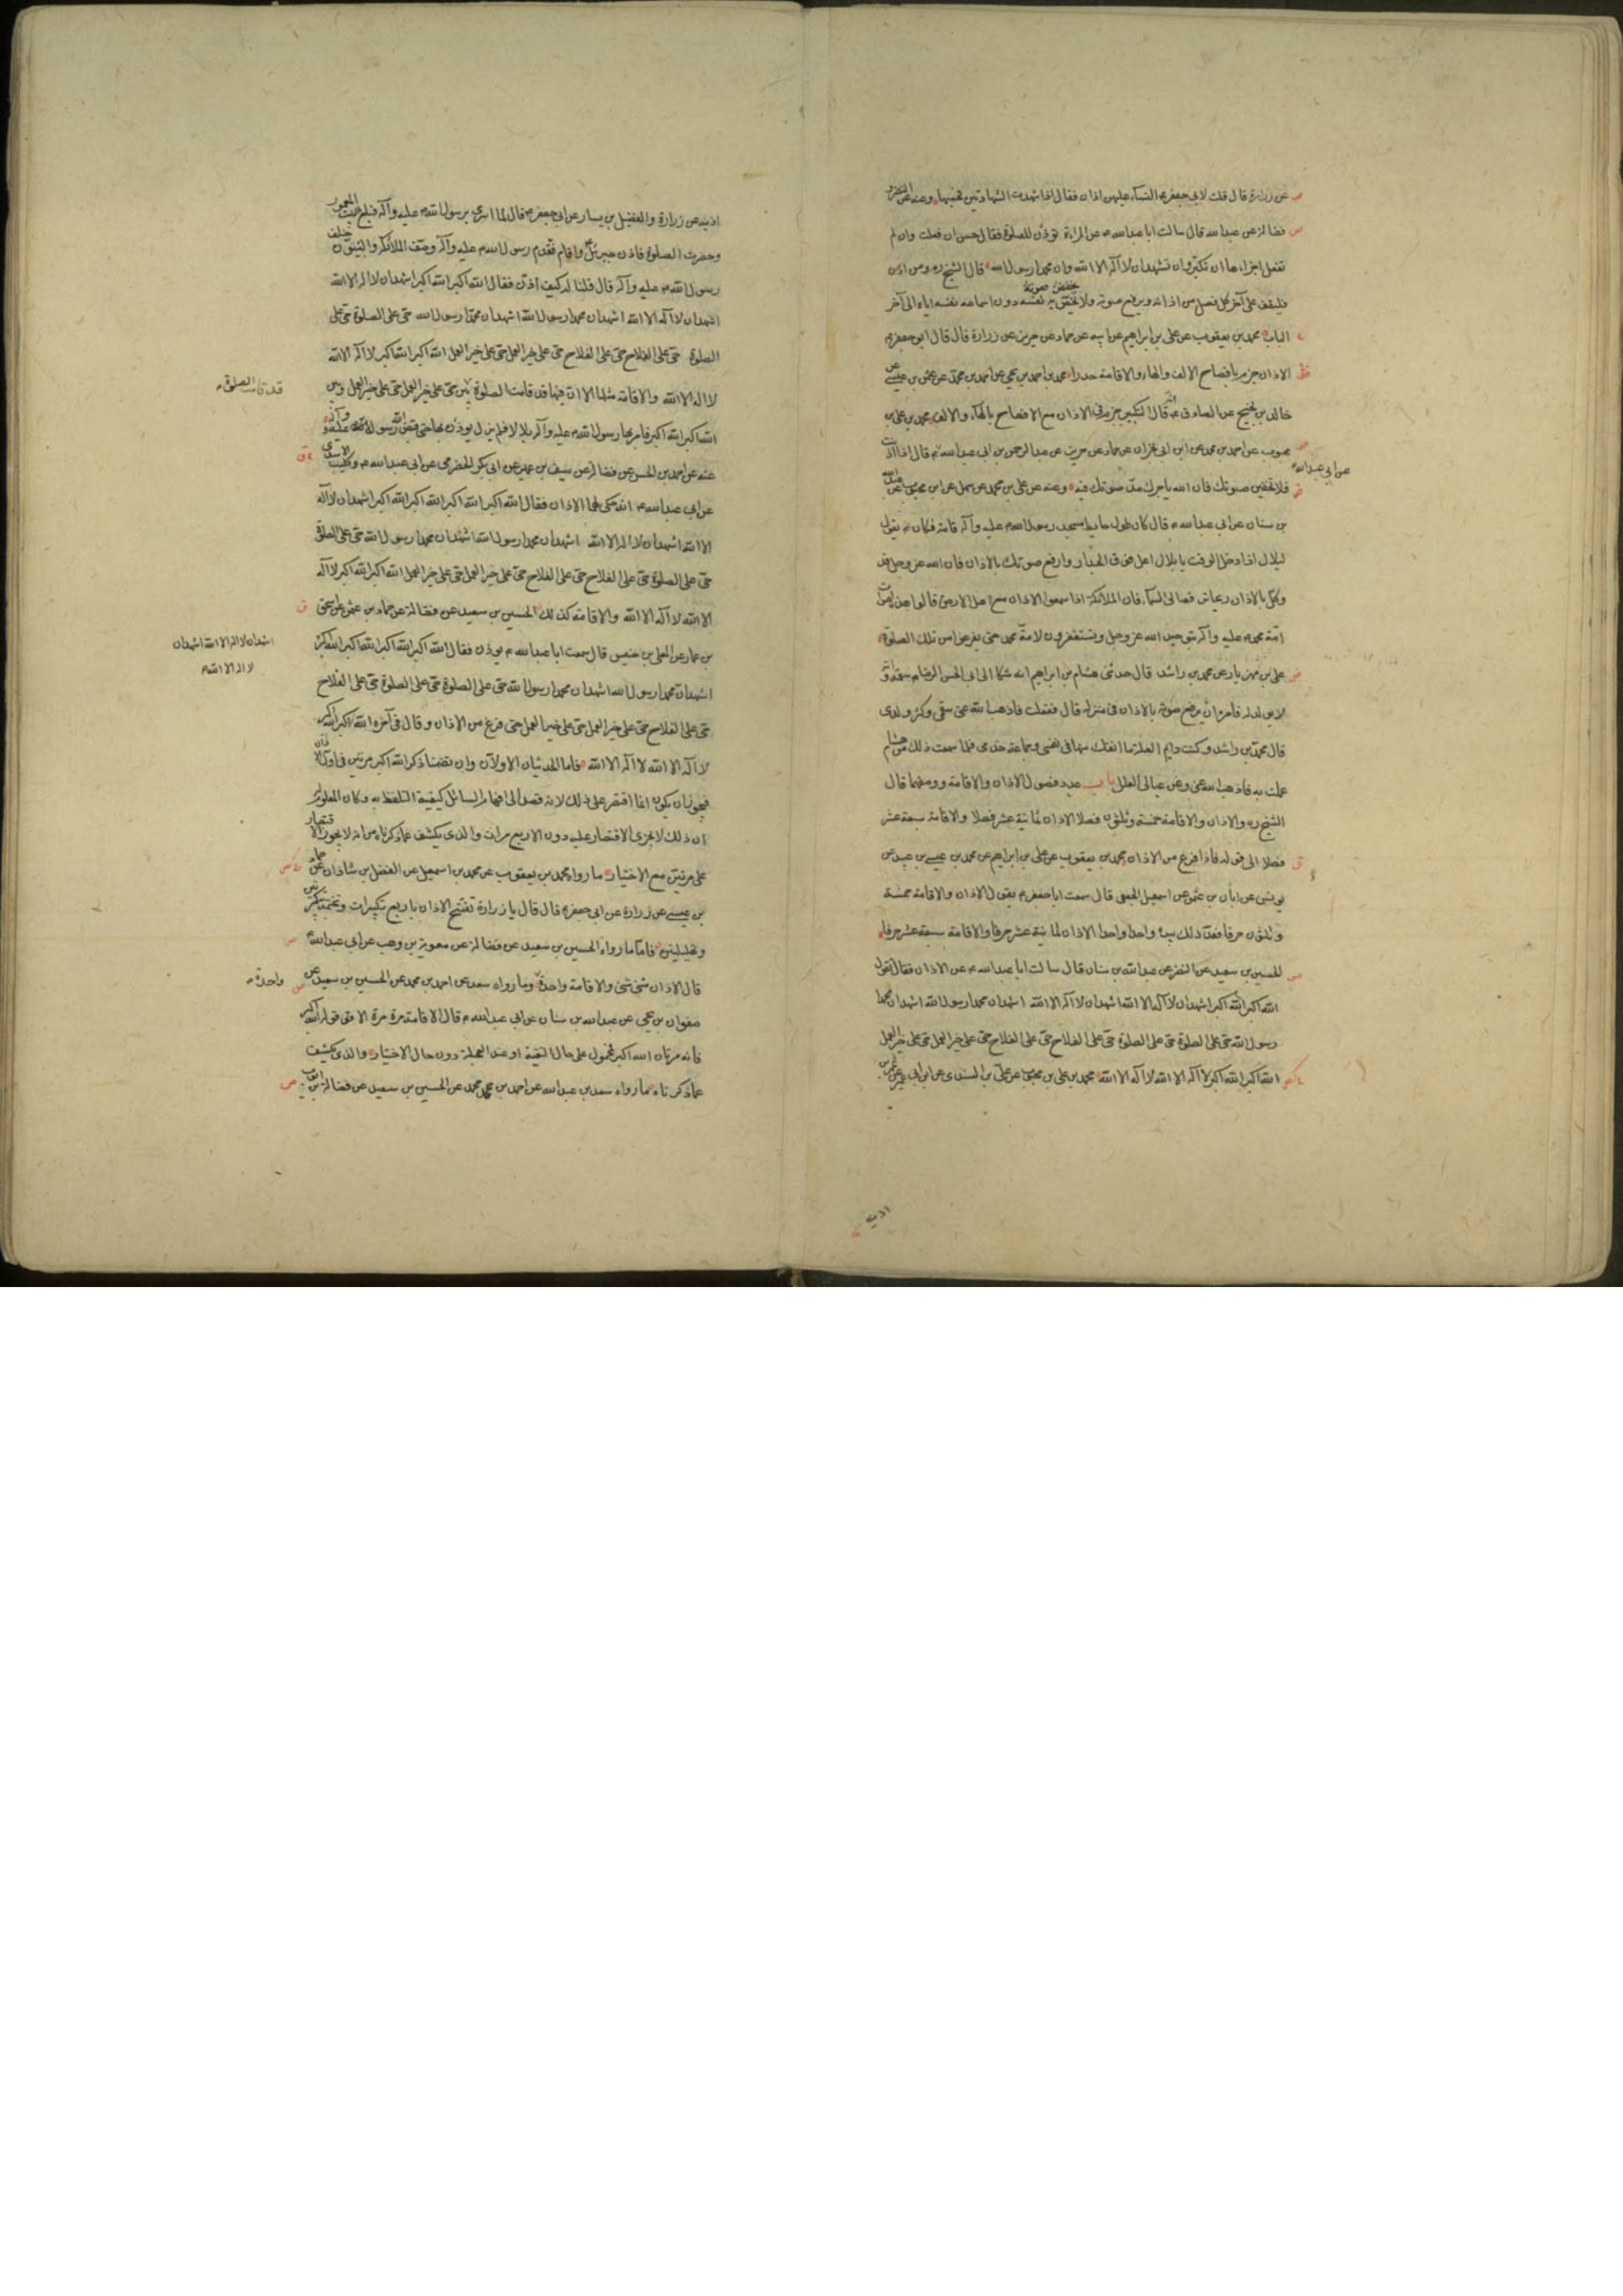 عن زرارة قال قلت لابي جعفر ع النساء عليهن اذان فقال اذا شهدت الشهادتين فحسبها وعنه عن النضر و
فضالة عن عبد الله قال سالت ابا عبد الله ع عن المراة تؤذن للصلوة فقال حسن ان فعلت وان لم
تفعل اجزاءها ان تكبر وان تشهد ان لا اله الا الله وان محمدا رسول الله قال الشيخ ره ومن اذن
فليقف على آخر كل فصل من اذانه ويرفع صوته ولا يخفض به نفسه دون اسماعه نفسه اياه الى آخر
يخفض صوته
الباب محمد بن يعقوب عن علي بن ابراهيم عن ابيه عن حماد عن حريز عن زرارة قال قال ابو جعفر ع
الاذان جزم بافصاح الالف والهاء والاقامة حدر محمد بن احمد بن يحيى عن احمد بن محمد عن بن عيسى عن
خالد بن نجيح عن الصادق ع انه قال التكبير جزم في الاذان مع الافصاح بالهاء والالف محمد بن علي بن
محبوب عن احمد بن محمد عن ابن ابي نجران عن حماد عن حريز عن عبد الرحمن بن ابي عبد الله قال اذا اذنت
عن ابي عبد الله
فلا تخفين صوتك فان الله ياجرك مد صوتك فيه وعنه عن علي بن محمد عن سهل عن ابن محبوب عن عبد الله
بن سنان عن ابي عبد الله ع قال كان طول حايط مسجد رسول الله ص عليه وآله قامة فكان ع يقول
لبلال اذا دخل الوقت يا بلال اعل فوق الجدار وارفع صوتك بالاذان فان الله عز وجل قد
وكل بالاذان ريحا ترفعه الى السماء فان الملائكة اذا سمعوا الاذان من اهل الارض قالوا هذه اصوات
امة محمد ص عليه وآله بتوحيد الله عز وجل ويستغفرون لامة محمد حتى يفرغوا من تلك الصلوة
علي بن مهزيار عن محمد بن راشد قال حدثني هشام بن ابراهيم انه شكا الى ابي الحسن الرضا ع سقمه وانه
لا يولد له فامره ان يرفع صوته بالاذان في منزله قال ففعلت فاذهب الله عني سقمي وكثر ولدي
قال محمد بن راشد وكنت دايم العلة ما انفك منها في نفسي وجماعة خدمي فلما سمعت ذلك من هشام
عملت به فاذهب الله عني وعن عيالي العلل باب عدد فصول الاذان والاقامة ووصفهما قال
الشيخ ره والاذان والاقامة خمسة وثلثون فصلا الاذان ثمانية عشر فصلا والاقامة سبعة عشر
فصلا الى قوله فاذا فرغ من الاذان محمد بن يعقوب عن علي بن ابراهيم عن محمد بن عيسى بن عبيد عن
يونس عن ابان بن عثمن عن اسمعيل الجعفي قال سمعت ابا جعفر ع يقول الاذان والاقامة خمسة
وثلثون حرفا فعد ذلك بيده واحدا واحدا الاذان ثمانية عشر حرفا والاقامة سبعة عشر حرفا
الحسين بن سعيد عن النضر عن عبد الله بن سنان قال سالت ابا عبد الله ع عن الاذان فقال تقول
الله اكبر الله اكبر اشهد ان لا اله الا الله اشهد ان لا اله الا الله اشهد ان محمدا رسول الله اشهد ان محمدا
رسول الله حي على الصلوة حي على الصلوة حي على الفلاح حي على الفلاح حي على خير العمل حي على خير العمل
الله اكبر الله اكبر لا اله الا الله لا اله الا الله محمد بن علي بن محبوب عن علي بن السندي عن ابن ابي عمير عن ابن
اذينة
اذينه عن زرارة والفضيل بن يسار عن ابي جعفر ع قال لما اسري برسول الله ص عليه وآله فبلغ البيت المعمور
وحضرت الصلوة فاذن جبرئيل واقام فتقدم رسول الله ص عليه وآله وصف الملائكة والنبيون خلف
رسول الله ص عليه وآله قال فقلنا له كيف اذن فقال الله اكبر الله اكبر اشهد ان لا اله الا الله
اشهد ان لا اله الا الله اشهد ان محمدا رسول الله اشهد ان محمدا رسول الله حي على الصلوة حي على
الصلوة حي على الفلاح حي على الفلاح حي على خير العمل حي على خير العمل الله اكبر الله اكبر لا اله الا الله
لا اله الا الله والاقامة مثلها الا ان فيها قد قامت الصلوة بين حي على خير العمل حي على خير العمل وبين
قد قامت الصلوة
الله اكبر الله اكبر فامر بها رسول الله ص عليه وآله بلالا فلم يزل يوذن بها حتى قبض الله رسول الله ص عليه وآله
عنه عن احمد بن الحسن عن فضالة عن سيف بن عميرة عن ابي بكر الحضرمي عن ابي عبد الله ع وكليب الاسدي
عن ابي عبد الله ع انه حكى لهما الاذان فقال الله اكبر الله اكبر الله اكبر الله اكبر اشهد ان لا اله
الا الله اشهد ان لا اله الا الله اشهد ان محمدا رسول الله اشهد ان محمدا رسول الله حي على الصلوة
حي على الصلوة حي على الفلاح حي على الفلاح حي على خير العمل حي على خير العمل الله اكبر الله اكبر لا اله
الا الله لا اله الا الله والاقامة كذلك الحسين بن سعيد عن فضالة عن حماد بن عثمن عن اسحق
بن عمار عن المعلى بن خنيس قال سمعت ابا عبد الله ع يوذن فقال الله اكبر الله اكبر الله اكبر الله اكبر
اشهد ان لا اله الا الله اشهد ان
لا اله الا الله
اشهد ان محمدا رسول الله اشهد ان محمدا رسول الله حي على الصلوة حي على الصلوة حي على الفلاح
حي على الفلاح حي على خير العمل حي على خير العمل حتى فرغ من الاذان وقال في آخره الله اكبر الله اكبر
لا اله الا الله لا اله الا الله فاما الحديثان الاولان وان تضمنا ذكر الله اكبر مرتين في اول الاذان
فيجوز ان يكون انما اقتصر على ذلك لانه قصد الى افهام السائل كيفية التلفظ به وكان المعلوم له
ان ذلك لا يجزي الاقتصار عليه دون الاربع مرات والذي يكشف عما ذكرناه من انه لا يجوز الاقتصار
على مرتين مع الاختيار ما رواه محمد بن يعقوب عن محمد بن اسمعيل عن الفضل بن شاذان عن حماد
بن عيسى عن زرارة عن ابي جعفر ع قال قال يا زرارة تفتتح الاذان باربع تكبيرات وتختمه بتكبيرتين
وتهليلتين فاما ما رواه الحسين بن سعيد عن فضالة عن معوية بن وهب عن ابي عبد الله ع
قال الاذان مثنى مثنى والاقامة واحدة وما رواه سعد عن احمد بن محمد عن الحسين بن سعيد عن
واحدة
صفوان بن يحيى عن عبد الله بن سنان عن ابي عبد الله ع قال الاقامة مرة مرة الا قوله الله اكبر
فانه مرتان الله اكبر فمحمول على حال التقية او عند العجلة دون حال الاختيار والذي يكشف
عما ذكرناه ما رواه سعد بن عبد الله عن احمد بن محمد عن الحسين بن سعيد عن فضالة بن ايوب